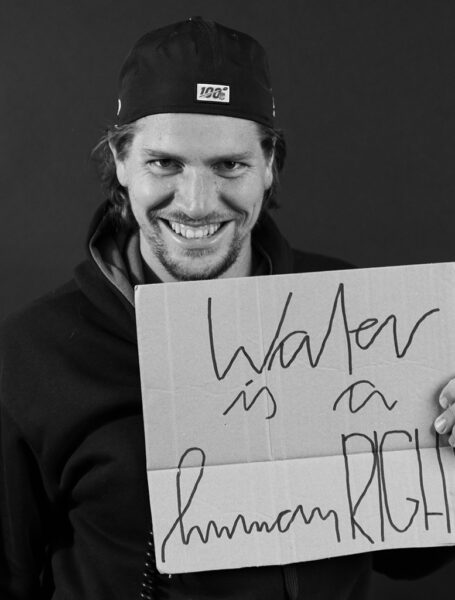 100%
Water
is a
human RIGH